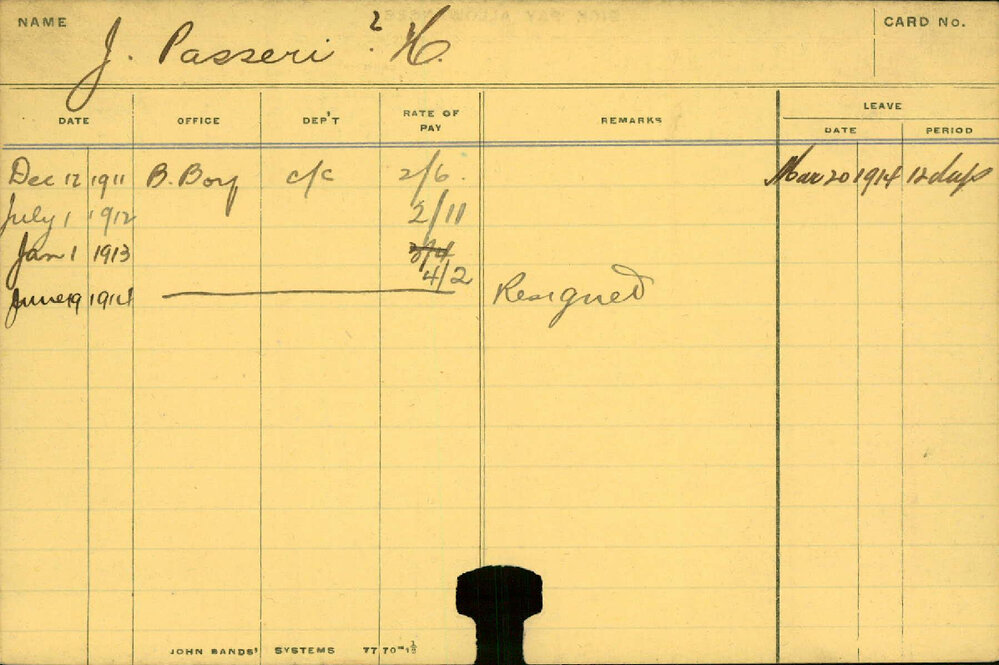 NAME J. Passeri ? H. CARD No.
DATE OFFICE DEP'T RATE OF PAY REMARKS LEAVE
DATE PERIOD
Dec 12 1911 B. Boy c/c 2/6. Mar 20 1914 12 days
July 1 1912 2/11
Jan 1 1913 3/4
4/2
June 19 1914 Resigned
JOHN SANDS' SYSTEMS